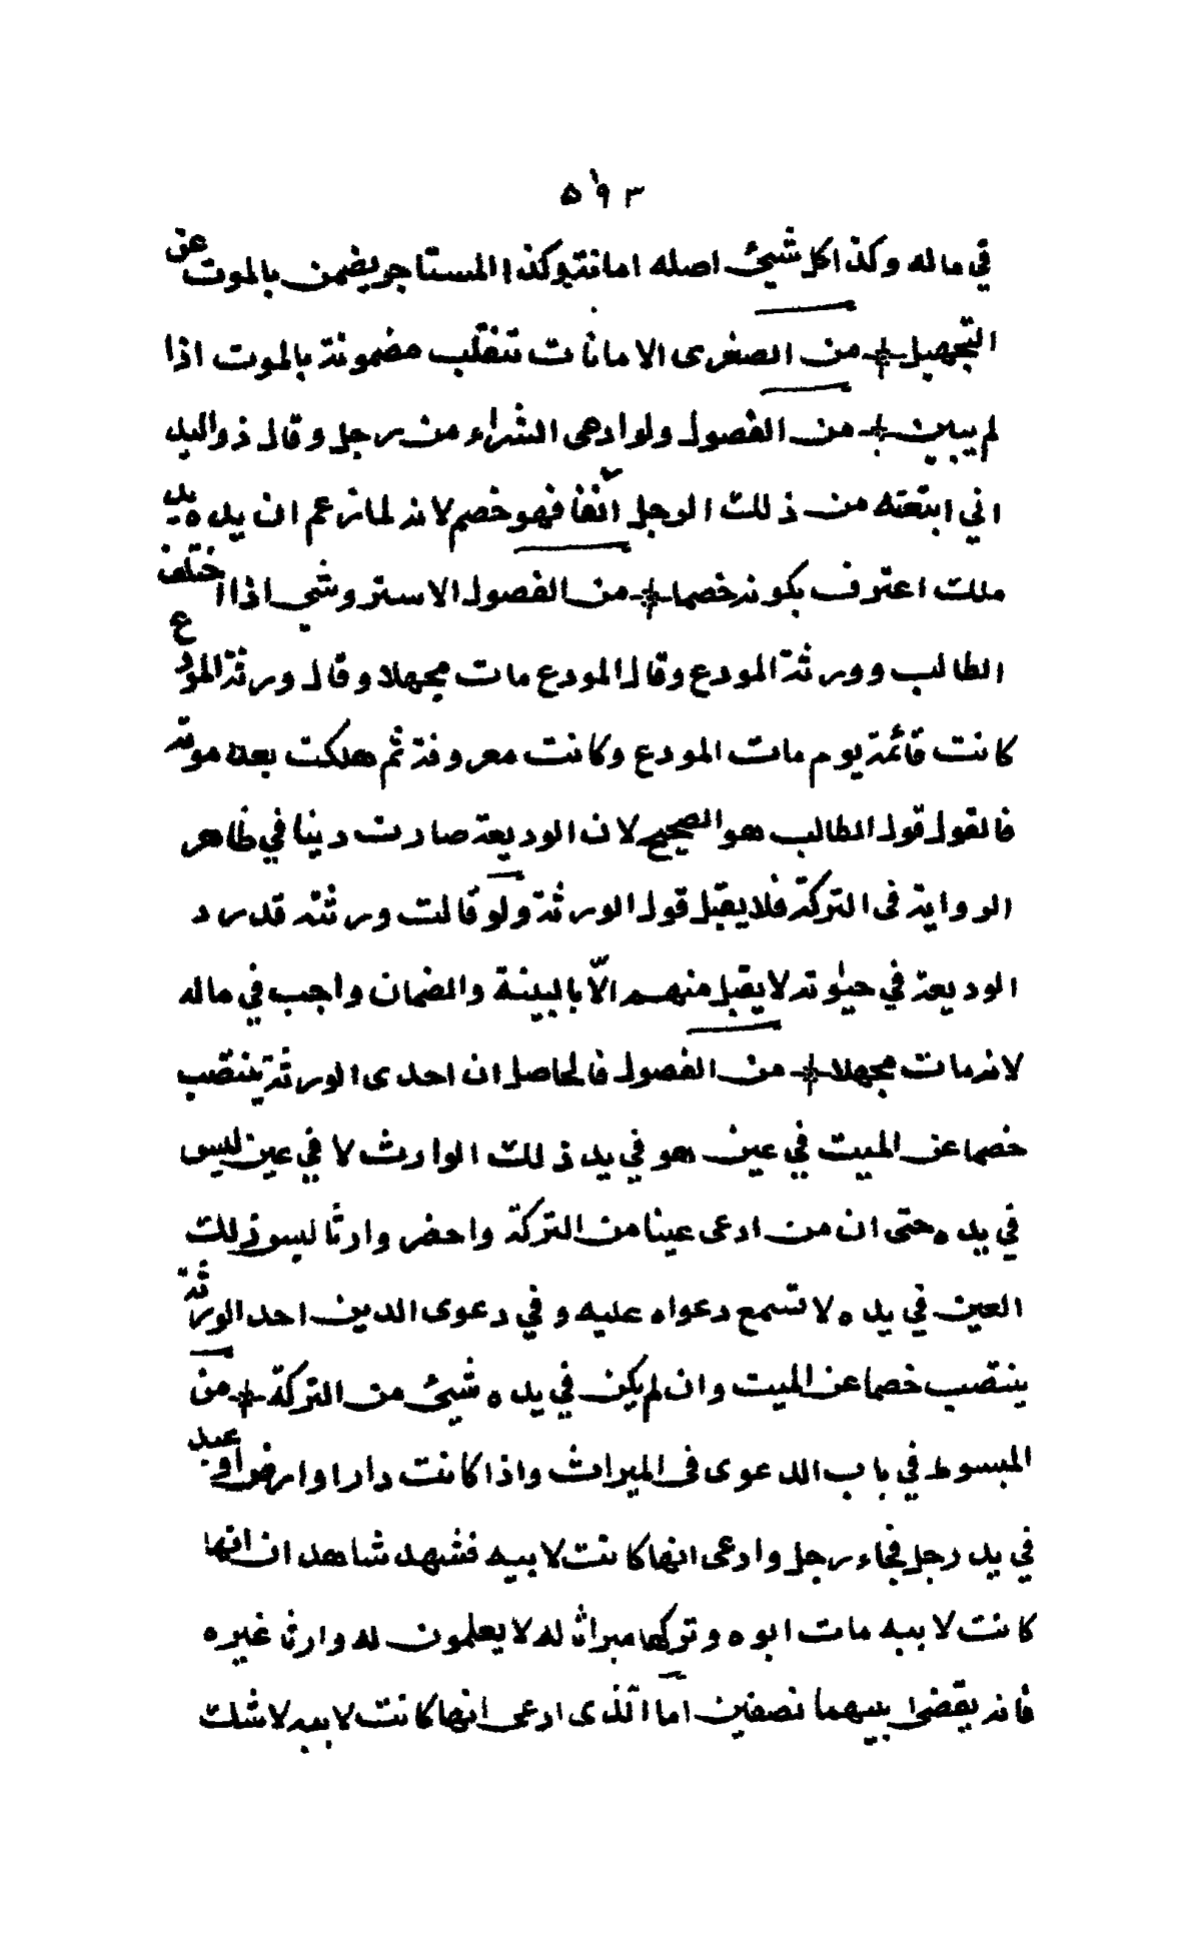 ٥٩٣
في ماله وكذا كل شيئ اصله امانتة وكذا المستاجر يضمن بالموت عن
التجهيل من الصغرى الامانات تنقلب مضمونة بالموت اذا
لم يبين من الفصول ولو ادعى الشراء من رجل وقال ذو اليد
اني ابتعته من ذلك الرجل آنفا فهو خصم لانه لما زعم ان يده يد
ملك اعترف بكونه خصما من الفصول الاستروشي اذا اختلف
الطالب وورثة المودع وقال المودع مات مجهلا وقال ورثة المودع
كانت قائمة يوم مات المودع وكانت معروفة ثم هلكت بعد موته
فالقول قول الطالب هو الصحيح لان الوديعة صارت دينا في ظاهر
الرواية فى التركة فلا يقبل قول الورثة ولو قالت ورثته قد رد
الوديعة في حيوته لا يقبل منهم الّا بالبينة والضمان واجب في ماله
لانه مات مجهلا من الفصول فالحاصل ان احدى الورثة ينتصب
خصما عن الميت في عين هو في يد ذلك الوارث لا في عين ليس
في يده حتى ان من ادعى عينا من التركة واحضر وارثا ليسو ذلك
العين في يده لا تسمع دعواه عليه و في دعوى الدين احد الورثة
ينتصب خصما عن الميت وان لم يكن في يده شيئ من التركة من
المبسوط في باب الدعوى فى الميراث واذا كانت دارا او ارضا او عبد
في يد رجل فجاء رجل وادعى انها كانت لابيه فشهد شاهدان انها
كانت لابيه مات ابوه وتركها ميراثا له لا يعلمون له وارثا غيره
فانه يقضى بينهما نصفين اما الذى ادعى انها كانت لابيه لا شك